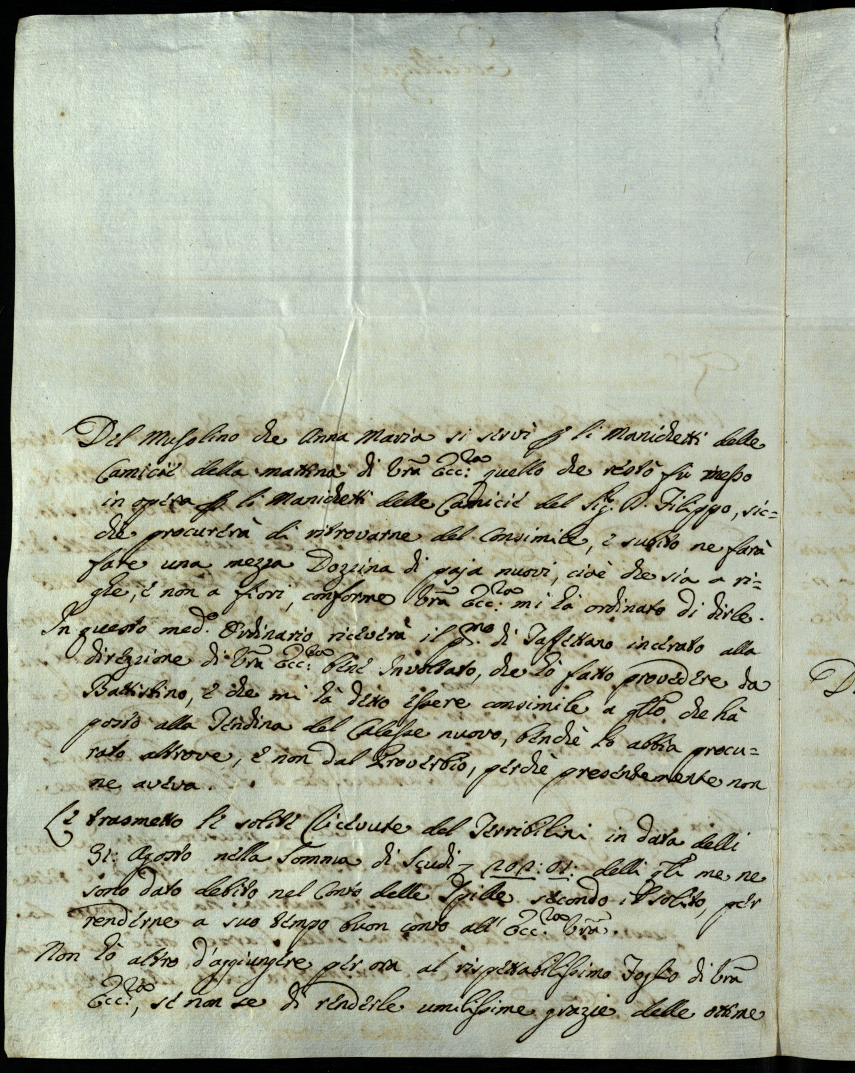 Del Musolino che Anna Maria si servì p li Manichetti delle
Camicie della mattina di Vrã Ecc:za quello che restò fù messo
in opera p li Manichetti delle Camicie del Sig. D. Filippo, sic=
che procurerà di ritrovarne del consimile, e subito ne farà
fare una mezza Dozzina di paja nuovi, cioè che sia a ri=
ghe, e non a fiori, conforme Vrã Ecc:za mi hà ordinato di dirle.
In questo med.o Ordinario riceverà il di Taffettano incerato alla
direzione di Vrã Ecc:za bene Involtato, che hò fatto provedere da
Battistino, e che mi hà detto essere consimile a qllo che hà
posto alla Tendina del Calesse nuovo, benche lo abbia procu=
rato altrove, e non dal Proverbio, perche presentemente non
ne aveva.
Le trasmetto le solite Ricevute del Terribilini in data delli
31: Agosto nella Somma di Scudi delli qli me ne
sono dato debito nel Conto delle Spille secondo il solito per
renderne a suo tempo buon conto all' Ecc:za Vrã.
Non hò altro d'aggiungere per ora al rispettabilissimo Foglio di Vrã
Ecc:za, se non se di renderle umilissime grazie delle ottime